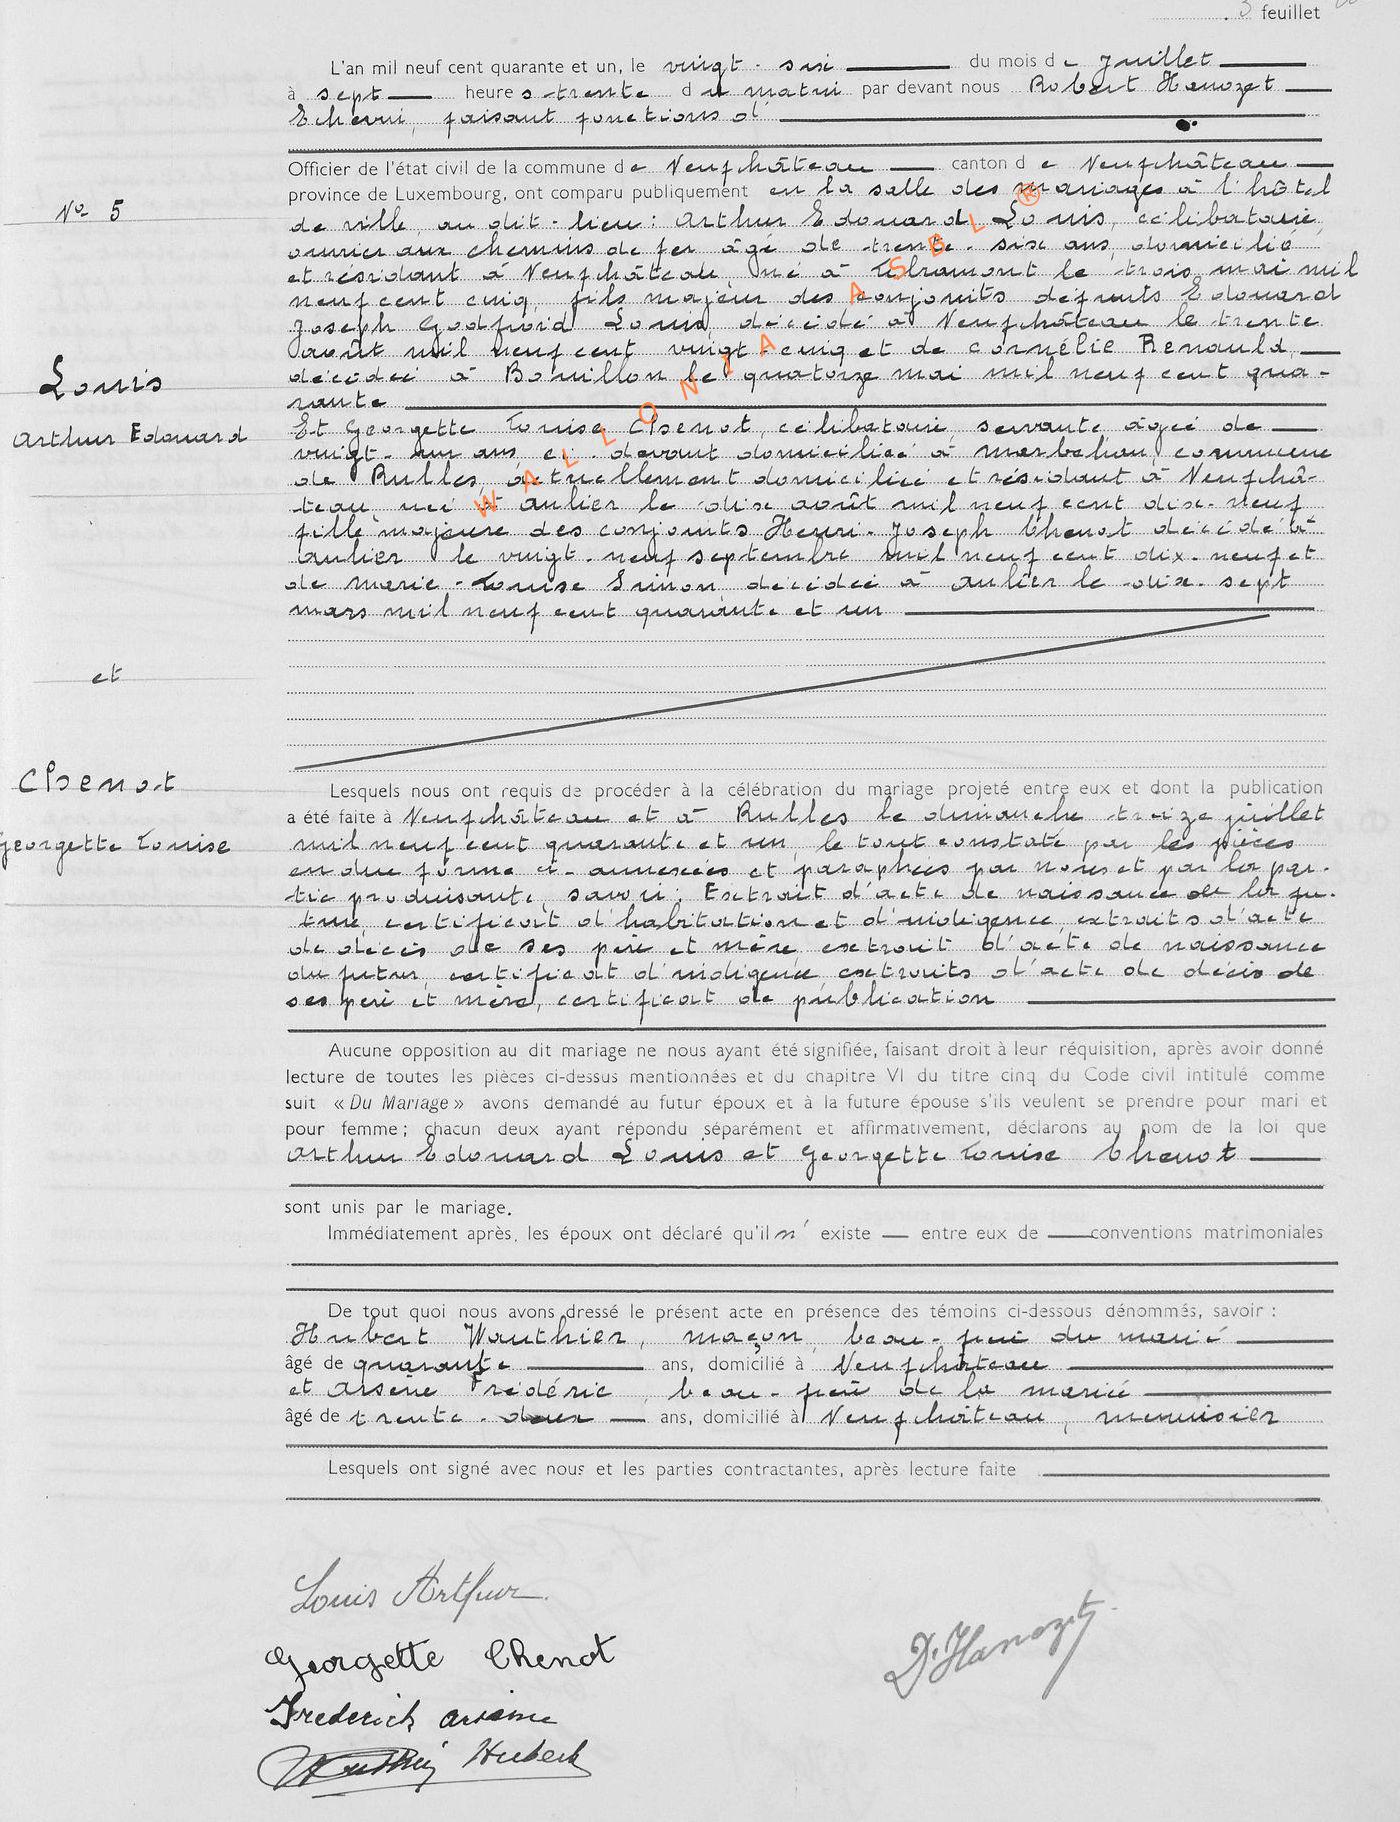 3 feuillet
L'an mil neuf cent quarante et un, le vingt-six du mois de Juillet
à sept heures trente du matin par devant nous Robert Hanozet
Echevin, faisant fonctions d'
Officier de l'état civil de la commune de Neufchâteau canton de Neufchâteau
province de Luxembourg, ont comparu publiquement en la salle des mariages à l'hôtel
N° 5
de ville, au dit-lieu: Arthur Edouard Louis, célibataire,
ouvrier aux chemins de fer âgé de trente-six ans, domicilié
et résidant à Neufchâteau, né à Libramont le trois mai mil
neuf cent cinq, fils majeur des conjoints défunts Edouard
Joseph Godfroid Louis, décédé à Neufchâteau le trente
août mil neuf cent vingt-cinq et de Cornélie Renauld,
Louis
décédée à Bouillon le quatorze mai mil neuf cent qua-
rante
Arthur Edouard
Et Georgette Louise Chenot, célibataire, servante, âgée de
vingt-un ans, ci-devant domiciliée à Marbehan, commune
de Rulles, actuellement domiciliée et résidant à Neufchâ-
teau, née à Anlier le dix août mil neuf cent dix-neuf
fille majeure des conjoints Henri-Joseph Chenot décédé à
Anlier le vingt-neuf septembre mil neuf cent dix-neuf et
de Marie-Louise Simon, décédée à Anlier le dix-sept
mars mil neuf cent quarante et un
WALLONIA ASBL ®
et
Chenot
Georgette Louise
Lesquels nous ont requis de procéder à la célébration du mariage projeté entre eux et dont la publication
a été faite à Neufchâteau et à Rulles le dimanche treize juillet
mil neuf cent quarante et un, le tout constaté par les pièces
en due forme ci-annexées et paraphées par nous et par la par-
tie produisante, savoir: Extrait d'acte de naissance de la fu-
ture, certificat d'habitation et d'indigence, extraits d'acte
de décès de ses père et mère, extrait d'acte de naissance
du futur, certificat d'indigence, extraits d'acte de décès de
ses père et mère, certificat de publication
Aucune opposition au dit mariage ne nous ayant été signifiée, faisant droit à leur réquisition, après avoir donné
lecture de toutes les pièces ci-dessus mentionnées et du chapitre VI du titre cinq du Code civil intitulé comme
suit « Du Mariage » avons demandé au futur époux et à la future épouse s'ils veulent se prendre pour mari et
pour femme ; chacun deux ayant répondu séparément et affirmativement, déclarons au nom de la loi que
Arthur Edouard Louis et Georgette Louise Chenot
sont unis par le mariage.
Immédiatement après, les époux ont déclaré qu'il n'existe entre eux de conventions matrimoniales
De tout quoi nous avons dressé le présent acte en présence des témoins ci-dessous dénommés, savoir :
Hubert Wauthier, maçon, beau-père du marié
âgé de quarante ans, domicilié à Neufchâteau
et Arsène Frédéric, beau-père de la mariée
âgé de trente-deux ans, domicilié à Neufchâteau, menuisier
Lesquels ont signé avec nous et les parties contractantes, après lecture faite
Louis Arthur
Georgette Chenot
D. Hanozet
Frederich Arsène
Wauthier Hubert